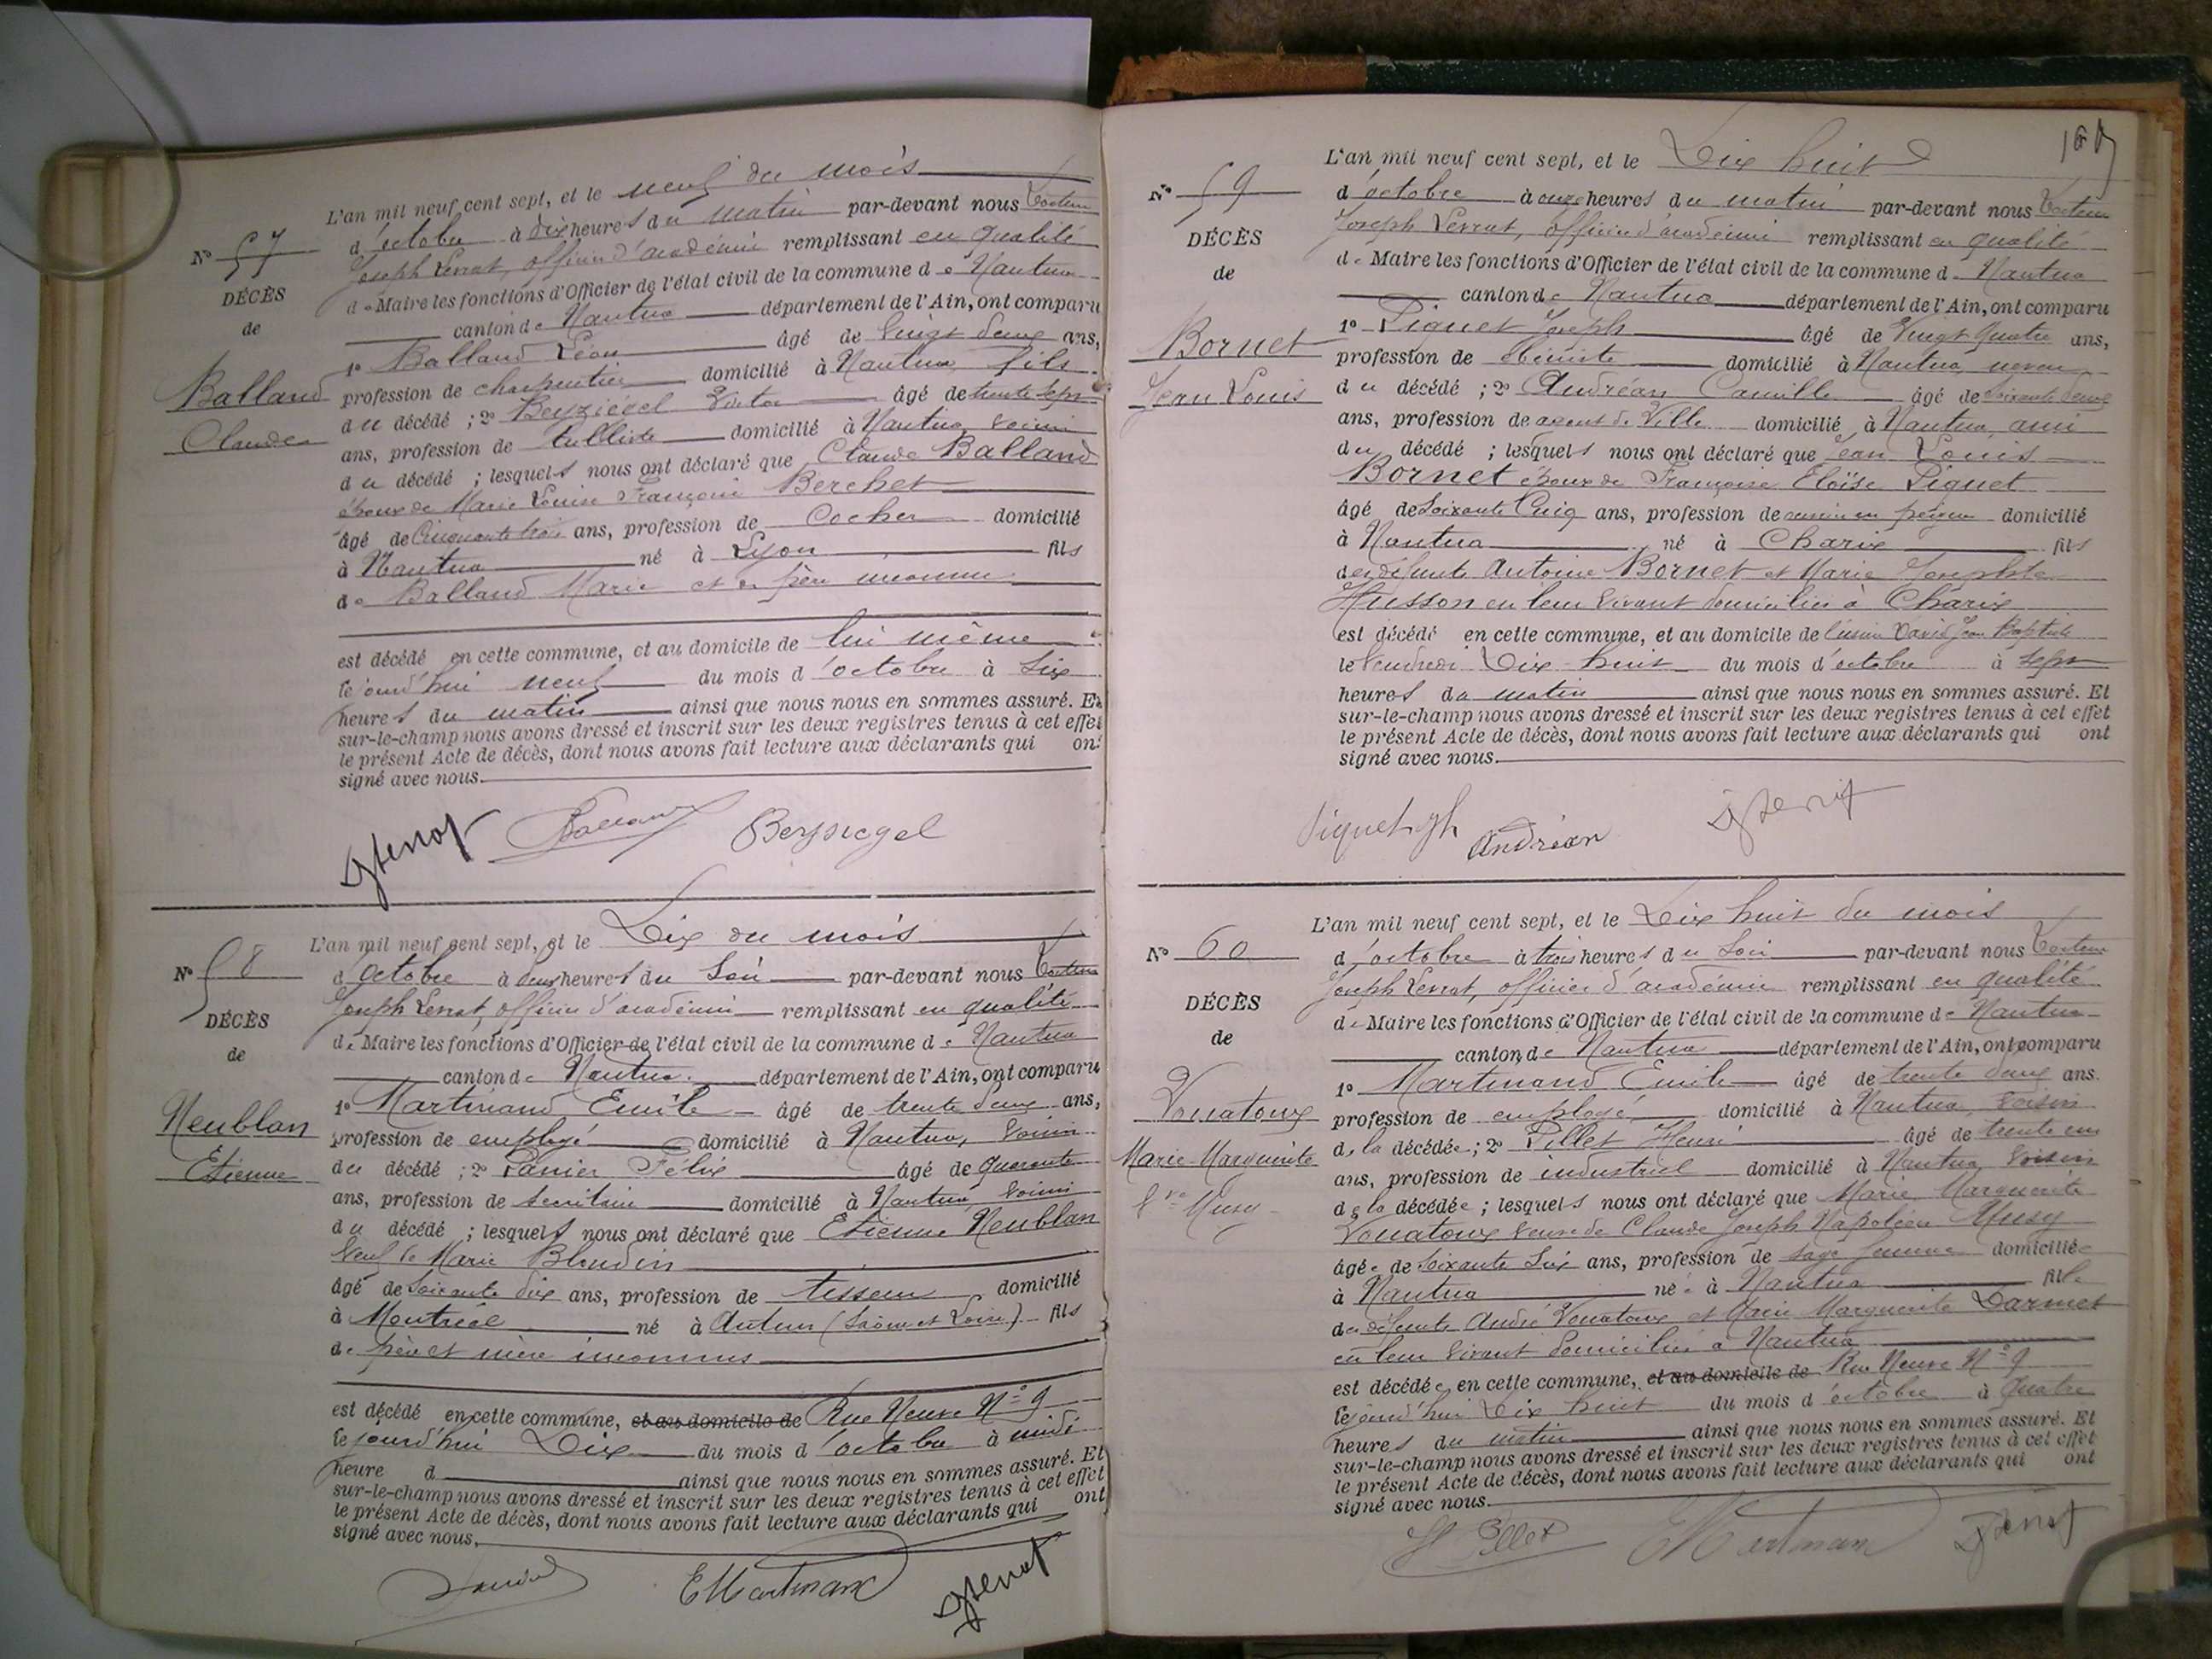 L'an mil neuf cent sept, et le neuf du mois
N° 57
d'octobre à dix heures du matin par-devant nous Docteur
Joseph Levrat, officier d'académie remplissant en qualité
DÉCÈS
de Maire les fonctions d'Officier de l'état civil de la commune de Nantua
de
canton de Nantua département de l'Ain, ont comparu
1° Balland Léon âgé de Vingt deux ans,
Balland
profession de charpentier domicilié à Nantua, fils
Claude
du décédé ; 2° Beysiégel Victor âgé de trente sept
ans, profession de tulliste domicilié à Nantua, voisin
du décédé ; lesquels nous ont déclaré que Claude Balland
époux de Marie Louise Françoise Berchet
âgé de Cinquante trois ans, profession de Cocher domicilié
à Nantua né à Lyon fils
de Balland Marie et de père inconnu
est décédé en cette commune, et au domicile de lui même
le jourd'hui neuf du mois d'octobre à Six
heures du matin ainsi que nous nous en sommes assuré. Et
sur-le-champ nous avons dressé et inscrit sur les deux registres tenus à cet effet
le présent Acte de décès, dont nous avons fait lecture aux déclarants qui ont
signé avec nous.
Balland Beysiegel
L'an mil neuf cent sept, et le Dix du mois
N° 58
d'octobre à deux heures du Soir par-devant nous Docteur
Joseph Levrat, officier d'académie remplissant en qualité
DÉCÈS
de Maire les fonctions d'Officier de l'état civil de la commune de Nantua
de
canton de Nantua département de l'Ain, ont comparu
1° Martinand Emile âgé de trente deux ans,
Neublan
profession de employé domicilié à Nantua, Voisin
Etienne
du décédé ; 2° Panier Félix âgé de quarante
ans, profession de secrétaire domicilié à Nantua, Voisin
du décédé ; lesquels nous ont déclaré que Etienne Neublan
Veuf de Marie Blondin
âgé de Soixante dix ans, profession de tisseur domicilié
à Montréal né à Autun (Saône et Loire) fils
de père et mère inconnus
est décédé en cette commune, et au domicile de Rue Neuve N° 9
le jourd'hui Dix du mois d'octobre à midi
heure d ainsi que nous nous en sommes assuré. Et
sur-le-champ nous avons dressé et inscrit sur les deux registres tenus à cet effet
le présent Acte de décès, dont nous avons fait lecture aux déclarants qui ont
signé avec nous.
L'an mil neuf cent sept, et le Dix huit
N° 59
d'octobre à onze heures du matin par-devant nous Docteur
Joseph Levrat, officier d'académie remplissant en qualité
DÉCÈS
de Maire les fonctions d'Officier de l'état civil de la commune de Nantua
de
canton de Nantua département de l'Ain, ont comparu
1° Piquet Joseph âgé de Vingt quatre ans,
Bornet
profession de ébéniste domicilié à Nantua, neveu
Jean Louis
du décédé ; 2° Andréan Camille âgé de Soixante deux
ans, profession de agent de Ville domicilié à Nantua, ami
du décédé ; lesquels nous ont déclaré que Jean Louis
Bornet époux de Françoise Eloïse Piquet
âgé de Soixante Cinq ans, profession de ouvrier en peignes domicilié
à Nantua né à Charix fils
des défunts Antoine Bornet et Marie Josephte
Husson en leur vivant domiciliés à Charix
est décédé en cette commune, et au domicile de l'usine David Jean Baptiste
le Vendredi Dix huit du mois d'octobre à Sept
heures du matin ainsi que nous nous en sommes assuré. Et
sur-le-champ nous avons dressé et inscrit sur les deux registres tenus à cet effet
le présent Acte de décès, dont nous avons fait lecture aux déclarants qui ont
signé avec nous.
Piquet Jh Andréan
L'an mil neuf cent sept, et le Dix huit du mois
N° 60
d'octobre à trois heures du Soir par-devant nous Docteur
Joseph Levrat, officier d'académie remplissant en qualité
DÉCÈS
de Maire les fonctions d'Officier de l'état civil de la commune de Nantua
de
canton de Nantua département de l'Ain, ont comparu
1° Martinand Emile âgé de trente deux ans.
Vouatoux
profession de employé domicilié à Nantua, voisin
Marie Marguerite
de la décédée ; 2° Pillet Henri âgé de trente un
Vve Musy
ans, profession de industriel domicilié à Nantua, Voisin
de la décédée ; lesquels nous ont déclaré que Marie Marguerite
Vouatoux veuve de Claude Joseph Napoléon Musy
âgée de Soixante Six ans, profession de sage femme domiciliée
à Nantua née à Nantua fille
des défunts André Vouatoux et Marie Marguerite Darmet
en leur vivant domiciliés à Nantua
est décédée en cette commune, et au domicile de Rue Neuve N° 9
le jourd'hui Dix huit du mois d'octobre à quatre
heures du matin ainsi que nous nous en sommes assuré. Et
sur-le-champ nous avons dressé et inscrit sur les deux registres tenus à cet effet
le présent Acte de décès, dont nous avons fait lecture aux déclarants qui ont
signé avec nous.
H Pillet